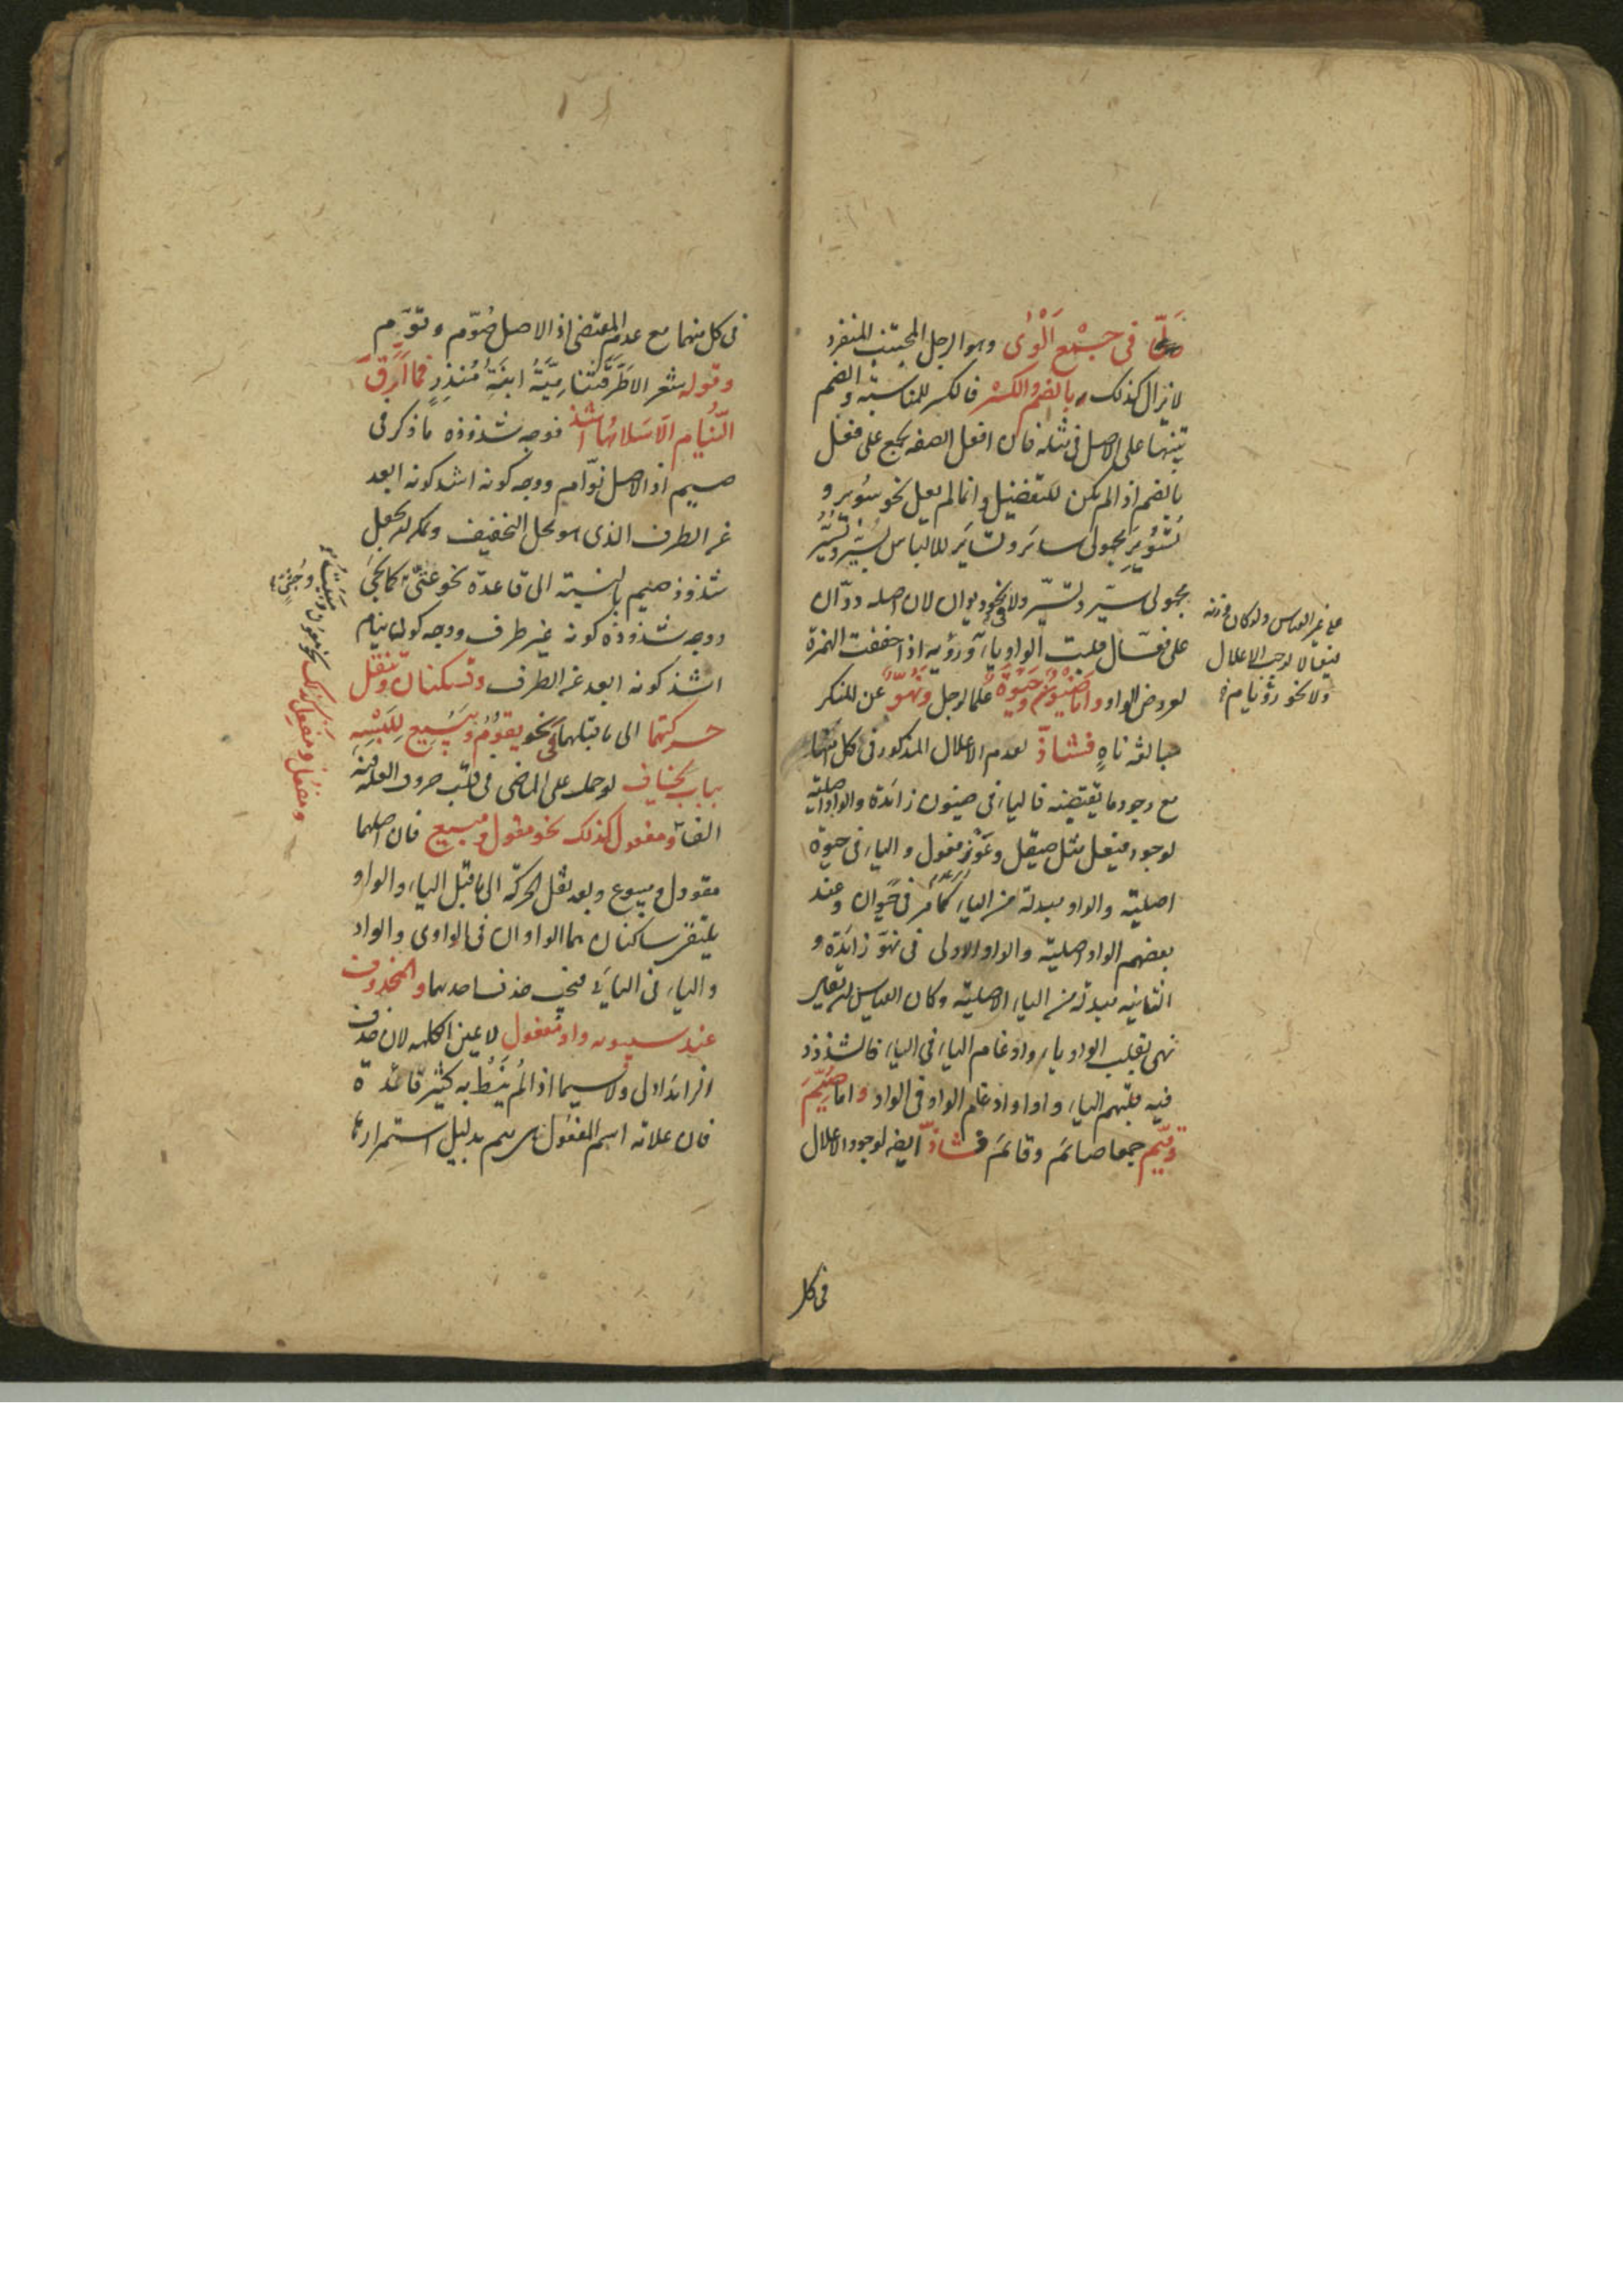 في جمع ألوى وهو الرجل المجتنب المنفرد
لا يزال كذلك بالضم والكسر فالكسر للمناسبة والضم
تنبيها على الاصل في مثله فان افعل الصفة يجمع على فعل
بالضم اذا لم يكن للتفضيل وانما لم يعل نحو سُوير و
تُسُوير مجهولي ساير وتساير للالتباس بسُيّر وتُسُيّر
مجهولي سيّر وتسيّر ولا في نحو ديوان لان اصله دوّان
على فعّال قلبت الواو ياء ورؤية اذا خففت الهمزة
لعروض الواو واما ضَيْوَن وحَيْوَة علما لرجل ونَهُوّ عن المنكر
مبالغة ناهٍ فشاذ لعدم الاعلال المذكور في كل منها
مع وجود ما يقتضيه فالياء في ضيون زائدة والواو اصلية
لوجود فيعل مثل صيقل وعوز فعول والياء في حيوة
اصلية والواو مبدلة من الياء كما مر في حيوان وعند
بعضهم الواو اصلية والواو الاولى في نهوّ زائدة و
الثانية مبدلة من الياء الاصلية وكان القياس ان يقال
نهي بقلب الواو ياء وادغام الياء في الياء فالشذوذ
فيه قلبهم الياء واوا وادغام الواو في الواو واما صُيَّم
وقُيَّم جمعا صائم وقائم فشاذ ايضا لوجود الاعلال
على غير القياس ولو كان
فيعالا لوجب الاعلال
ولا نحو رؤيا
في كل
في كل منهما مع عدم المقتضي اذ الاصل صُوّم وقُوّم
وقوله شعر الا طرقتنا ميّة ابنة منذر فما ارّق
النُيّام الا سلامها اشذ فوجه شذوذه ما ذكر في
صيم اذ الاصل نوّام ووجه كونه اشذ كونه ابعد
عن الطرف الذي هو محل التخفيف ويمكن ان يجعل
شذوذ صيم بالنسبة الى قاعدة نحو عتيّ كما يجئ
ووجه شذوذه كونه غير طرف ووجه كون نيام
اشذ كونه ابعد عن الطرف وتسكنان وتنقل
حركتهما الى ما قبلهما في نحو يقوم ويبيع للبسه
بباب يخاف لو حمل على الماضي في قلب حروف العلة فيه
الفا ومفعول كذلك نحو مقول ومبيع فان اصلهما
مقوول ومبيوع وبعد نقل الحركة الى ما قبل الياء والواو
يلتقي ساكنان هما الواوان في الواوي والواو
والياء في اليائي فيجب حذف احدهما والمحذوف
عند سيبويه واو مفعول لا عين الكلمة لان حذف
الزائد اولى ولا سيما اذا لم يُنَط به كثير فائدة
فان علامة اسم المفعول هي الميم بدليل استمرارها
ومفعُل ومفعِل كذلك نحو معون ومبيت